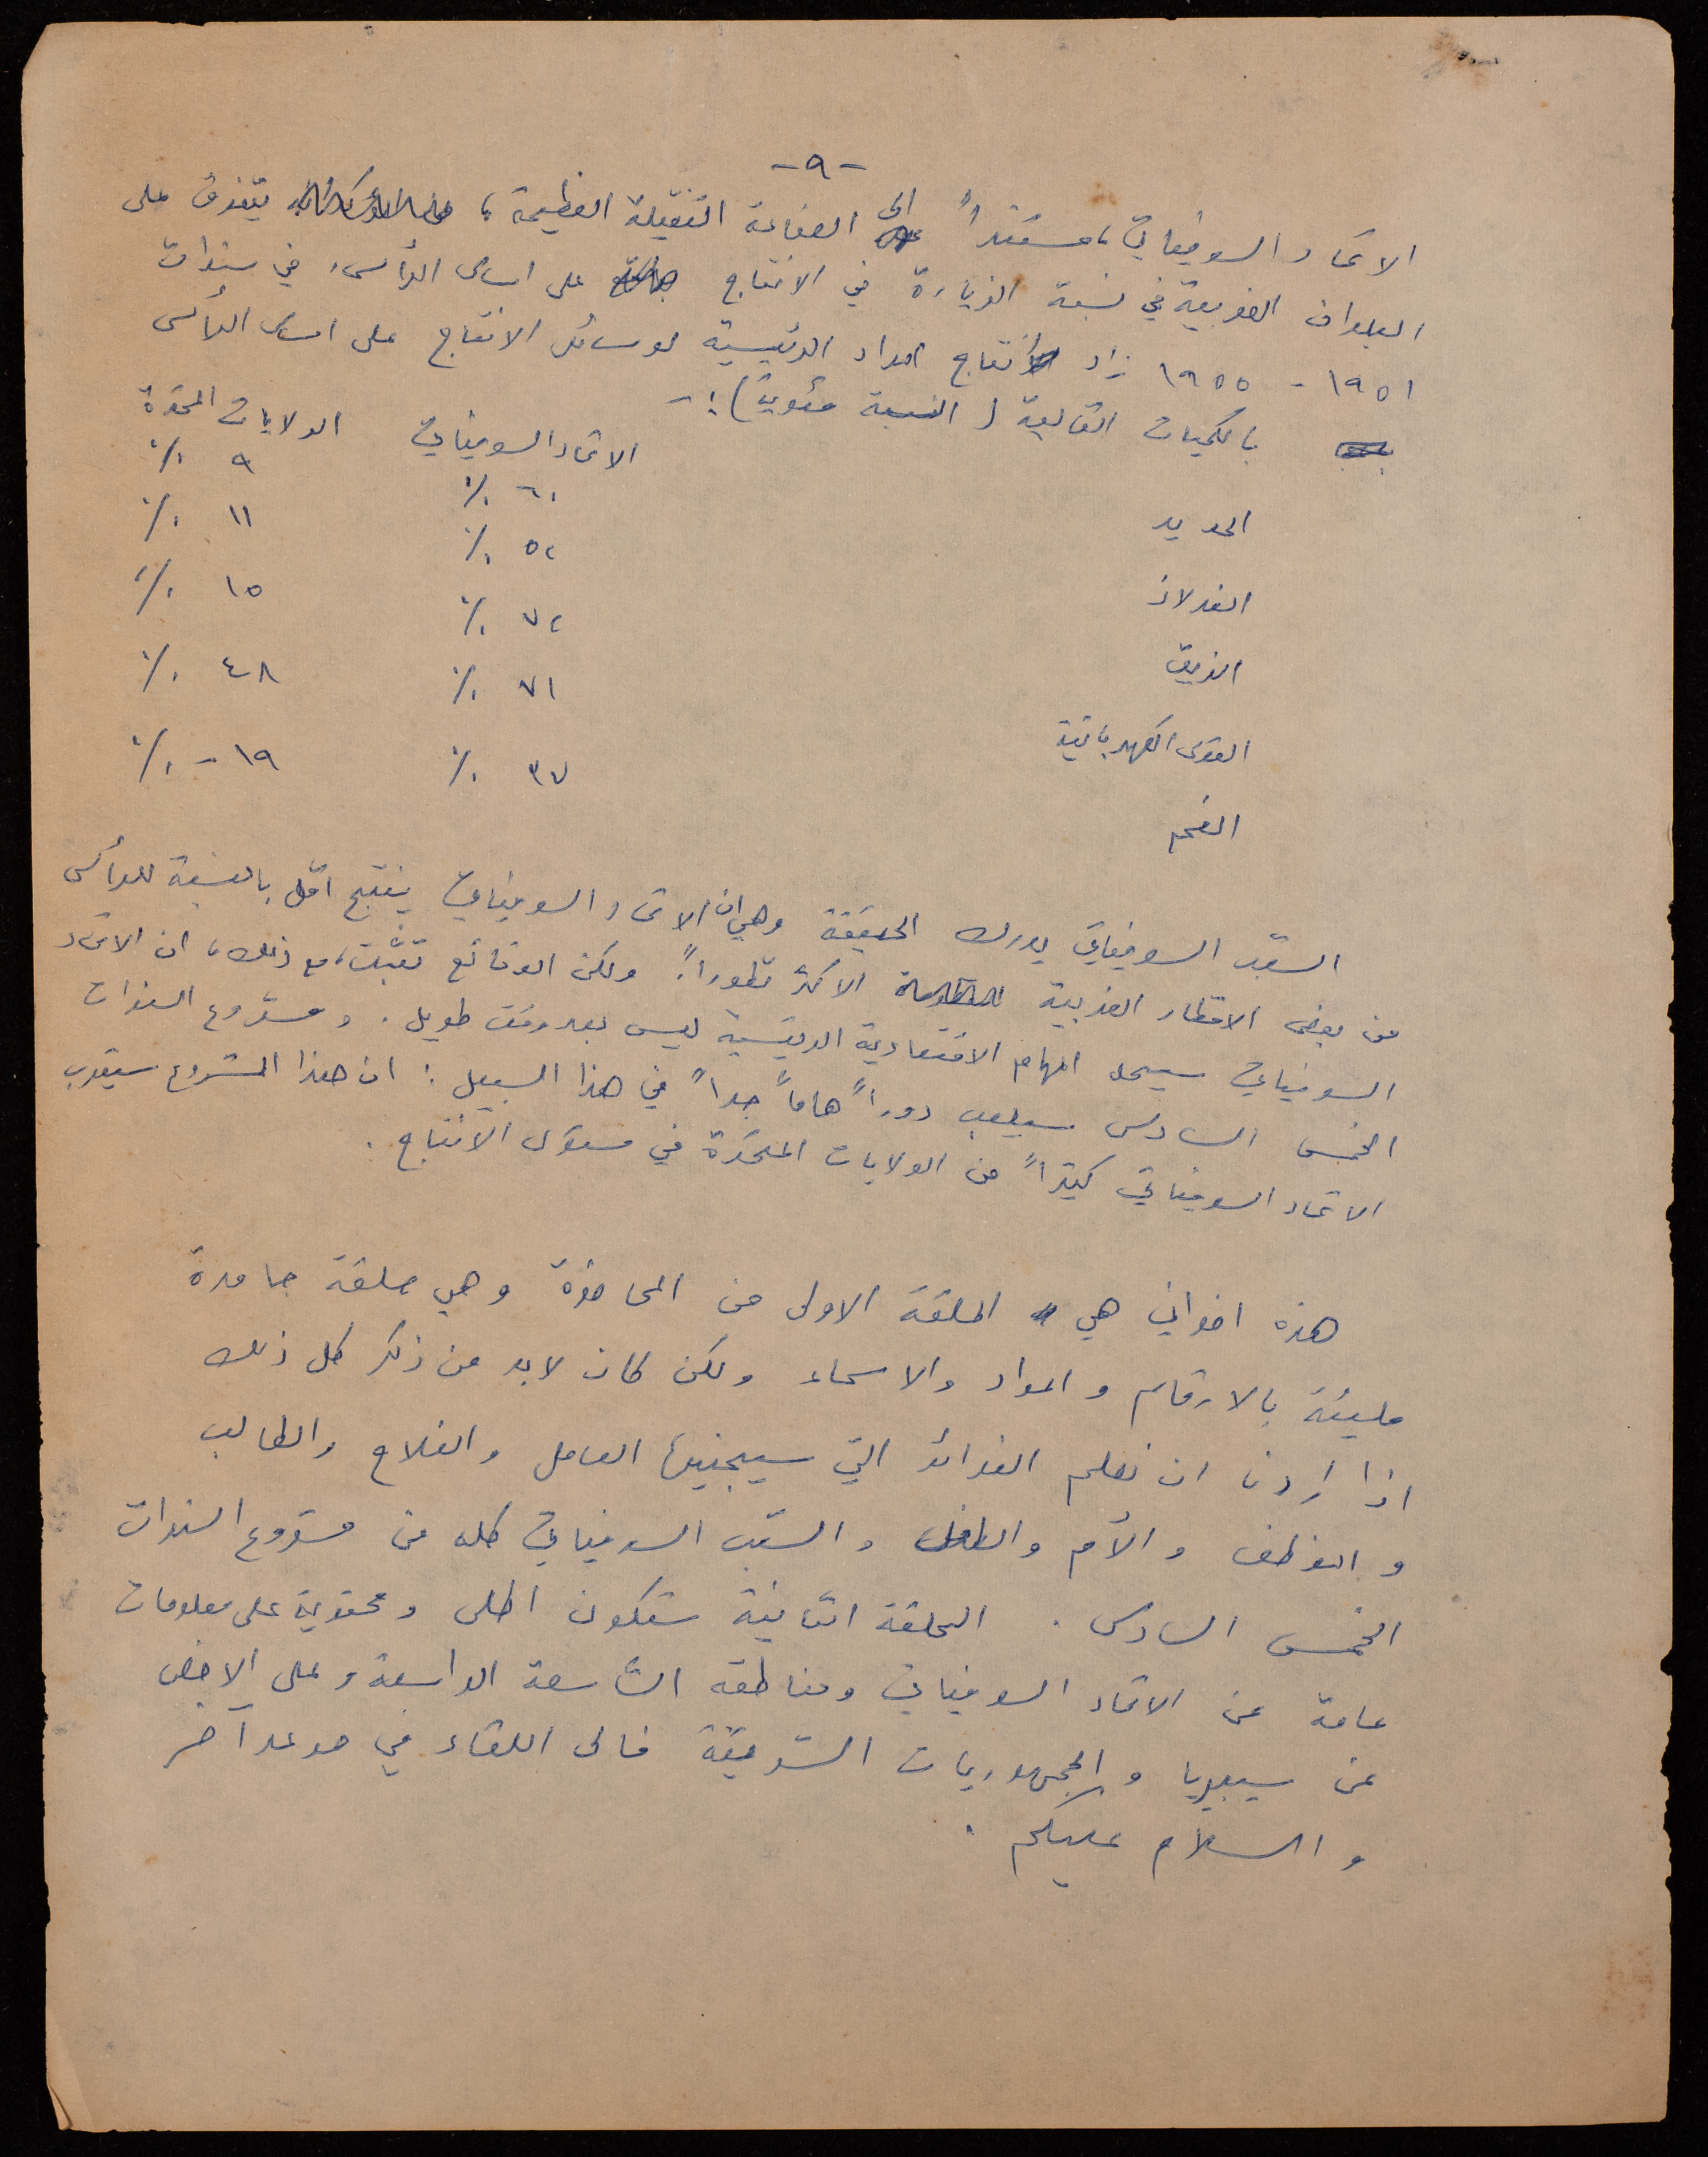 -٩-
الاتحاد السوفياتي، مستنداً الى الصناعة الثقيلة العظيمة، يتفوق على
البلدان الغربية في نسبة الزيادة في الانتاج على اساس الرأس، في سنوات
١٩٥١ - ١٩٥٥ زاد انتاج المواد الرئيسية لوسائل الانتاج على اساس الرأس
بالكميات التالية (النسبة مئوية):-
الاتحاد السوفياتي الولايات المتحدة
الحديد ٦٠ ٪ ٩ ٪
الفولاذ ٥٢ ٪ ١١ ٪
الزيت ٧٢ ٪ ١٥ ٪
القوى الكهربائية ٧١ ٪ ٤٨ ٪
الفحم ٣٧ ٪ ١٩- ٪
الشعب السوفياتي يدرك الحقيقة وهي ان الاتحاد السوفياتي ينتج اقل بالنسبة للرأس
من بعض الاقطار الغربية الاكثر تطوراً. ولكن الوقائع تثبت، مع ذلك، ان الاتحاد
السوفياتي سيحل المهام الاقتصادية الرئيسية ليس بعد وقت طويل. ومشروع السنوات
الخمس السادس سيلعب دوراً هاماً جداً في هذا السبيل: ان هذا المشروع سيقرب
الاتحاد السوفياتي كثيراً من الولايات المتحدة في مستوى الانتاج.
هذه اخواني هي الحلقة الاولى من المحاضرة وهي حلقة جامدة
مليئة بالارقام والمواد والاسماء ولكن كان لابد من ذكر كل ذلك
اذا اردنا ان نعلم الفوائد التي سيجنيها العامل والفلاح والطالب
والموظف والأم والطفل والشعب السوفياتي كله من مشروع السنوات
الخمس السادس. الحلقة الثانية ستكون احلى ومحتوية على معلومات
عامة عن الاتحاد السوفياتي ومناطقه الشاسعة الواسعة وعلى الاخص
عن سيبيريا والجمهوريات الشرقية فالى اللقاء في موعد آخر
والسلام عليكم.